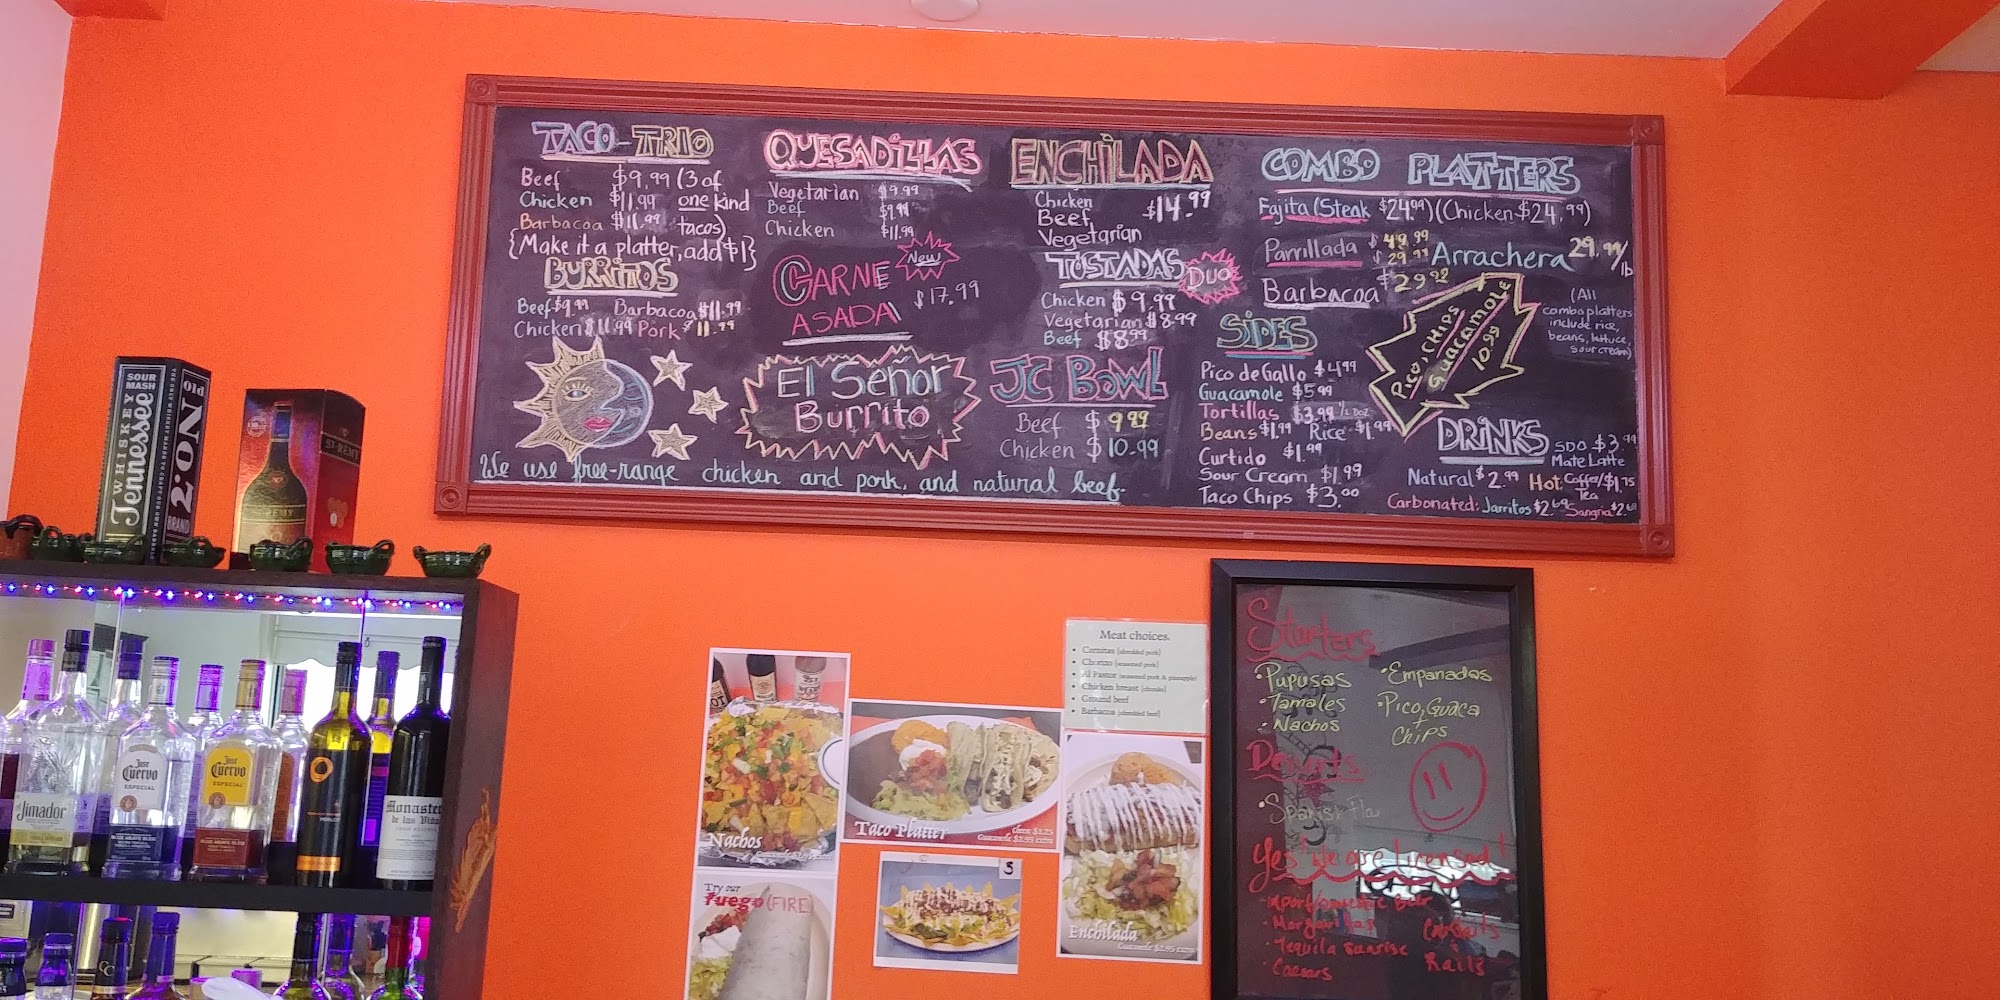 TACO-TRIO
Beef $9.99 (3 of
Chicken $11.99 one kind
Barbacoa $11.99 tacos)
{Make it a platter, add $1}
BURRITOS
Beef $9.99 Barbacoa $11.99
Chicken $11.99 Pork $11.99
QUESADILLAS
Vegetarian $9.99
Beef $9.99
Chicken $11.99
New
CARNE
ASADA $17.99
El Señor
Burrito
We use free-range chicken and pork, and natural beef.
ENCHILADA
Chicken
Beef $14.99
Vegetarian
TOSTADAS DUO
Chicken $9.99
Vegetarian $8.99
Beef $8.99
JC BOWL
Beef $9.99
Chicken $10.99
COMBO PLATTERS
Fajita (Steak $24.99) (Chicken $24.99)
Parrillada $49.99
$29.99
Arrachera 29.99/lb
Barbacoa $29.99
(All
combo platters
include rice,
beans, lettuce,
sour cream)
SIDES
Pico de Gallo $4.99
Guacamole $5.99
Tortillas $3.99 1/2 Doz
Beans $1.99 Rice $1.99
Curtido $1.99
Sour Cream $1.99
Taco Chips $3.00
PICO, CHIPS
GUACAMOLE
10.99
DRINKS
SDO $3.99
Mate Latte
Natural $2.99 Hot: Coffee/$1.75
Tea
Carbonated: Jarritos $2.69 Sangria $2.69
SOUR
MASH
Tennessee
WHISKEY
OLD
NO.7
BRAND
ST-RÉMY
el Jimador
Jose
Cuervo
ESPECIAL
Jose
Cuervo
ESPECIAL
Monasterio
de las Viñas
Meat choices:
• Carnitas (shredded pork)
• Chorizo (seasoned pork)
• Al Pastor (seasoned pork & pineapple)
• Chicken breast (chunks)
• Ground beef
• Barbacoa (shredded beef)
Nachos
Taco Platter
Cheese $1.25
Guacamole $2.95 extra
Try our
fuego (FIRE)
Enchilada
Guacamole $2.95 extra
Starters
• Pupusas • Empanadas
• Tamales • Pico, Guaca
• Nachos + Chips
Deserts
• Spanish Flan
Yes we are Licensed!
• Import/Domestic Beer
• Margaritas Cocktails
• Tequila Sunrise & Rails
• Caesars